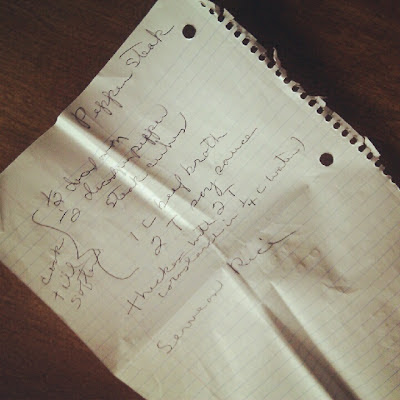 Pepper Steak
1/2 chop onion
1/2 chop green pepper
Steak cubes
Cook till soft
1 c beef broth
2 T soy sauce
thicken with 2 T
cornstarch in 1/4 c water)
Serve on Rice